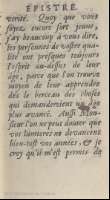 EPISTRE.
verité. Quoy que vous
soyez encore fort jeune,
j'ay beaucoup à vous dire,
les personnes de vostre quali-
té ont presques toûjours
l'esprit au-dessus de leur
âge, parce que l'on trouve
moyen de leur apprendre
dés le berceau des choses
qui demanderoient
plus avancé. Aussi Mon-
sieur l'on ne peut douter que
vos lumieres ne devancent
bien-tost vos années, & je
croy qu'il m'est permis de